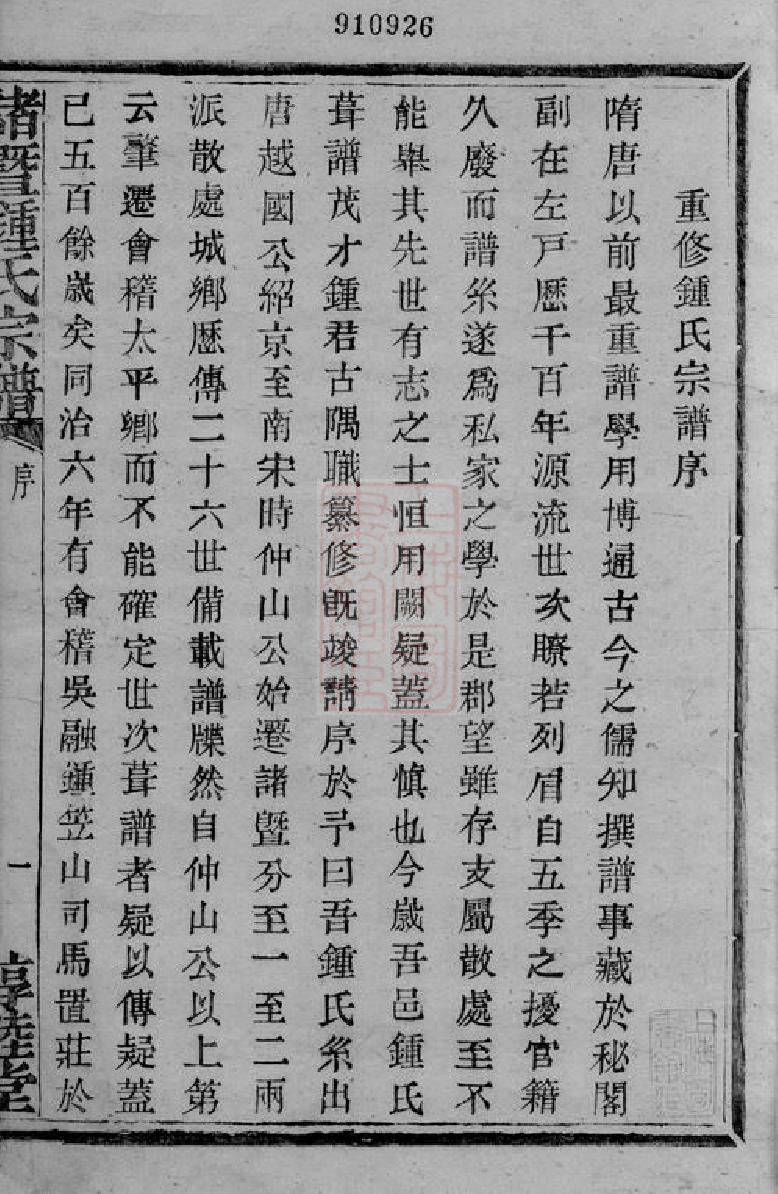 910926
重修鍾氏宗譜序
隋唐以前最重譜學用博通古今之儒知撰譜事藏於秘閣
副在左戸歷千百年源流世次瞭若列眉自五季之擾官籍
久廢而譜系遂爲私家之學於是郡望雖存支屬散處至不
能舉其先世有志之士恒用闕疑蓋其慎也今歲吾邑鍾氏
葺譜茂才鍾君古隅職纂修旣竣請序於予曰吾鍾氏系出
唐越國公紹京至南宋時仲山公始遷諸暨分至一至二兩
派散處城鄉歷傳二十六世備載譜牒然自仲山公以上第
云肇遷會稽太平鄉而不能確定世次葺譜者疑以傳疑蓋
已五百餘歲矣同治六年有會稽吳融鍾笠山司馬置莊於
諸暨鍾氏宗譜
序
一
惇睦堂